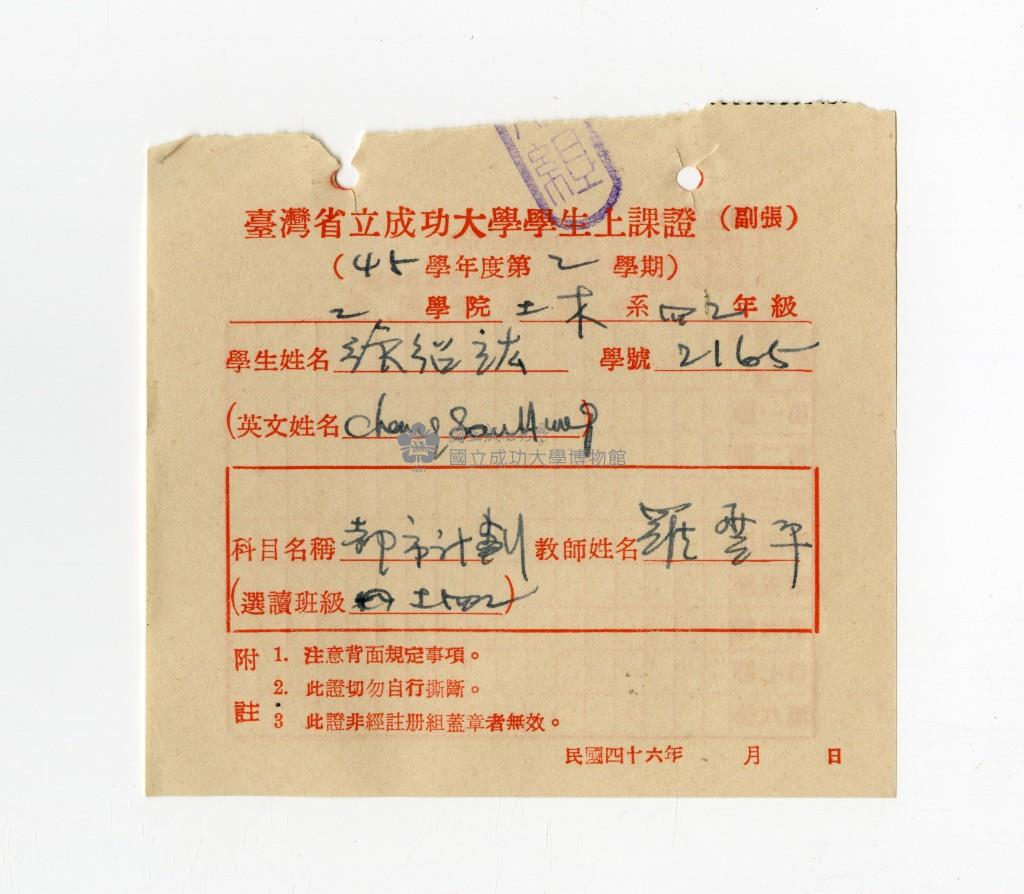 臺灣省立成功大學學生上課證（副張）
（45學年度第2學期）
工學院土木系四乙年級
學生姓名 紹 學號2165
（英文姓名 Chang）
國立成功大學博物館
科目名稱都市計劃 教師姓名羅雲平
（選讀班級 土四乙）
附註 1. 注意背面規定事項。
2. 此證切勿自行撕斷。
3 此證非經註册組蓋章者無效。
民國四十六年 月 日